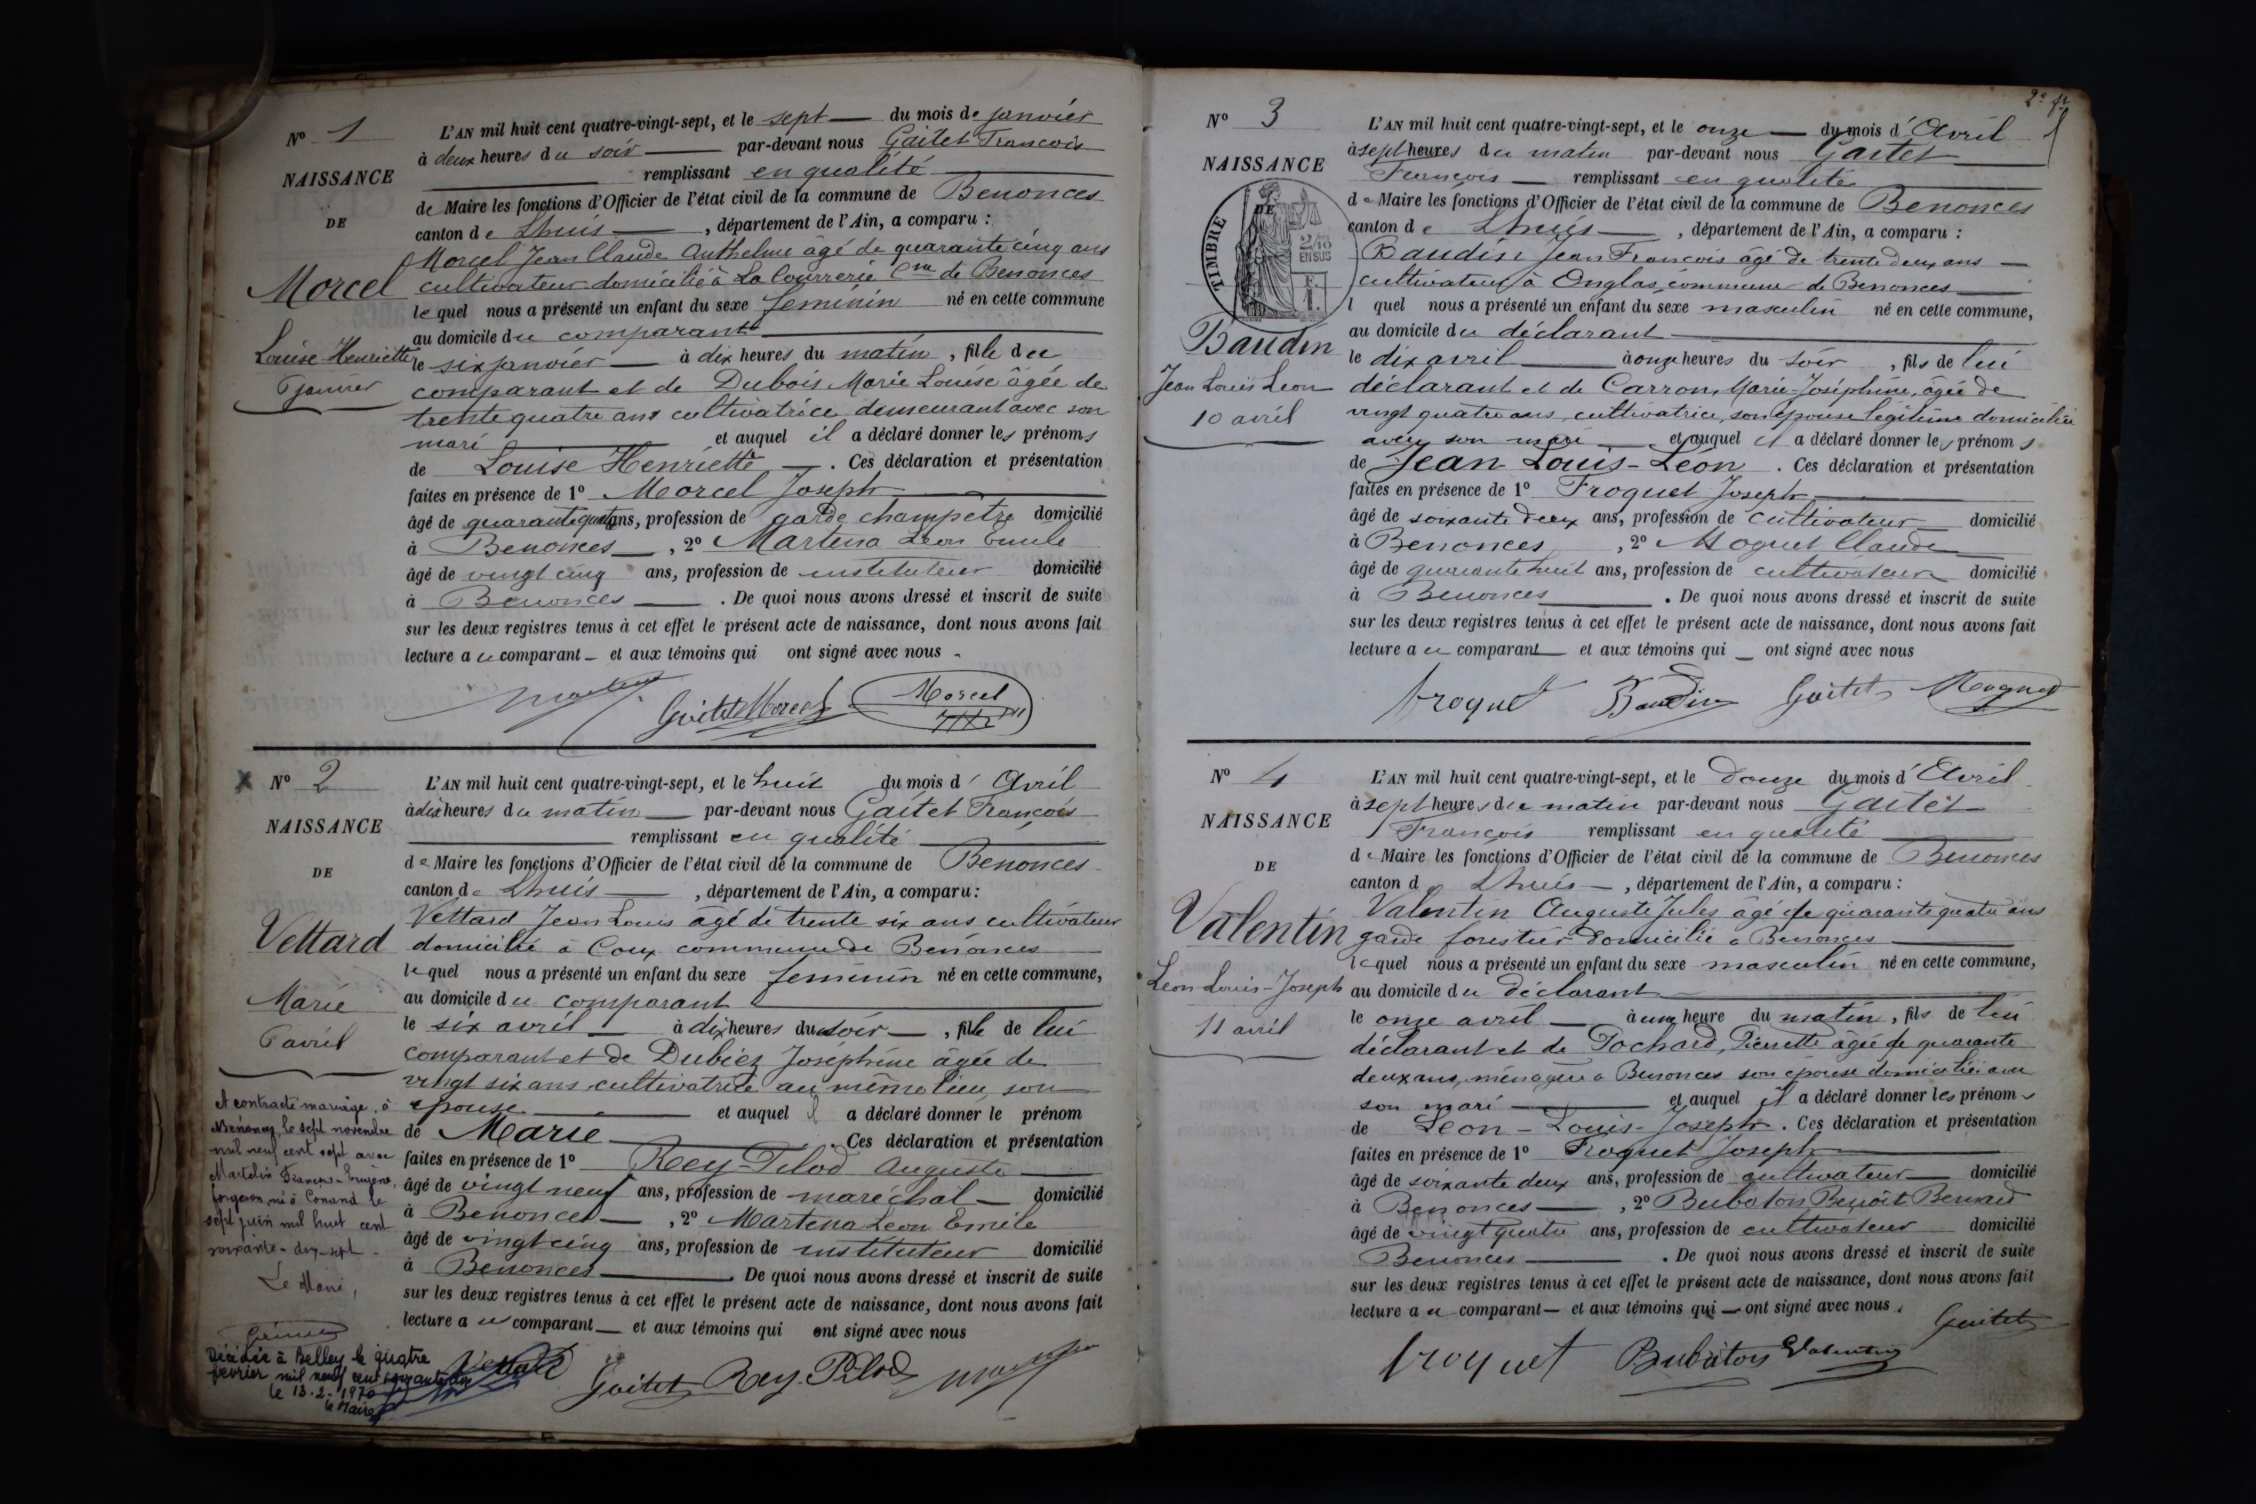 Nº 1
NAISSANCE
DE
Morcel
Louise Henriette
6 janvier
L'AN mil huit cent quatre-vingt-sept, et le sept du mois de janvier
à deux heures du soir par-devant nous Gaitet François
remplissant en qualité
de Maire les fonctions d'Officier de l'état civil de la commune de Benonces
canton de Lhuis, département de l'Ain, a comparu :
Morcel Jean Claude Anthelme âgé de quarante cinq ans
cultivateur domicilié à La Courrerie Cne de Benonces
lequel nous a présenté un enfant du sexe feminin né en cette commune
au domicile du comparant
le six janvier à dix heures du matin, fille du
comparant et de Dubois Marie Louise âgée de
trente quatre ans cultivatrice demeurant avec son
mari et auquel il a déclaré donner les prénoms
de Louise Henriette. Ces déclaration et présentation
faites en présence de 1º Morcel Joseph
âgé de quarante quatre ans, profession de garde champetre domicilié
à Benonces, 2º Martena Léon Emile
âgé de vingt cinq ans, profession de instituteur domicilié
à Benonces. De quoi nous avons dressé et inscrit de suite
sur les deux registres tenus à cet effet le présent acte de naissance, dont nous avons fait
lecture au comparant et aux témoins qui ont signé avec nous
Gaitet Morcel Morcel
Nº 2
NAISSANCE
DE
Vettard
Marie
6 avril
A contracté mariage à
Benonces, le sept novembre
mil neuf cent sept avec
Martelin François-Eugène,
forgeron, né à Conand le
sept juin mil huit cent
soixante-dix-sept.
Le Maire,
Décédée à Belley le quatre
fevrier mil neuf cent soixante dix
le 13-2-1970
le Maire
L'AN mil huit cent quatre-vingt-sept, et le huit du mois d'Avril
à dix heures du matin par-devant nous Gaitet François
remplissant en qualité
de Maire les fonctions d'Officier de l'état civil de la commune de Bénonces
canton de Lhuis, département de l'Ain, a comparu :
Vettard Jean Louis âgé de trente six ans cultivateur
domicilié à Coux commune de Benonces
lequel nous a présenté un enfant du sexe feminin né en cette commune,
au domicile du comparant
le six avril à dix heures du soir, fille de lui
comparant et de Dubiez Joséphine âgée de
vingt six ans cultivatrice au même lieu, son
epouse et auquel il a déclaré donner le prénom
de Marie. Ces déclaration et présentation
faites en présence de 1º Rey-Pilod Auguste
âgé de vingt neuf ans, profession de maréchal domicilié
à Benonces, 2º Martena Léon Emile
âgé de vingt cinq ans, profession de instituteur domicilié
à Benonces. De quoi nous avons dressé et inscrit de suite
sur les deux registres tenus à cet effet le présent acte de naissance, dont nous avons fait
lecture au comparant et aux témoins qui ont signé avec nous
Vettard Gaitet Rey-Pilod
2e ft
Nº 3
NAISSANCE
DE
TIMBRE
2/10
EN SUS
Baudin
Jean Louis Leon
10 avril
L'AN mil huit cent quatre-vingt-sept, et le onze du mois d'Avril
à sept heures du matin par-devant nous Gaitet
François remplissant en qualité
de Maire les fonctions d'Officier de l'état civil de la commune de Benonces
canton de Lhuis, département de l'Ain, a comparu :
Baudin Jean François âgé de trente deux ans
cultivateur à Onglas, commune de Benonces
l quel nous a présenté un enfant du sexe masculin né en cette commune,
au domicile du déclarant
le dix avril à onze heures du soir, fils de lui
déclarant et de Carron, Marie-Joséphine, âgée de
vingt quatre ans, cultivatrice, son épouse légitime domiciliée
avec son mari et auquel il a déclaré donner les prénoms
de Jean-Louis-Léon. Ces déclaration et présentation
faites en présence de 1º Froquet Joseph
âgé de soixante deux ans, profession de cultivateur domicilié
à Benonces, 2º Moquet Claude
âgé de quarante huit ans, profession de cultivateur domicilié
à Benonces. De quoi nous avons dressé et inscrit de suite
sur les deux registres tenus à cet effet le présent acte de naissance, dont nous avons fait
lecture au comparant et aux témoins qui ont signé avec nous
froquet Baudin Gaitet Moquet
Nº 4
NAISSANCE
DE
Valentin
Léon Louis-Joseph
11 avril
L'AN mil huit cent quatre-vingt-sept, et le douze du mois d'Avril
à sept heures du matin par-devant nous Gaitet
François remplissant en qualité
de Maire les fonctions d'Officier de l'état civil de la commune de Benonces
canton d Lhuis, département de l'Ain, a comparu :
Valentin Auguste Jules âgé de quarante quatre ans
garde forestier domicilié à Benonces
lequel nous a présenté un enfant du sexe masculin né en cette commune,
au domicile du déclarant
le onze avril à une heure du matin, fils de lui
déclarant et de Pochard, Pierrette âgée de quarante
deux ans, ménagère à Benonces son épouse domiciliée avec
son mari et auquel il a déclaré donner les prénoms
de Leon-Louis-Joseph. Ces déclaration et présentation
faites en présence de 1º Froquet Joseph
âgé de soixante deux ans, profession de cultivateur domicilié
à Benonces, 2º Bubaton Benoit Bernard
âgé de vingt quatre ans, profession de cultivateur domicilié
Benonces. De quoi nous avons dressé et inscrit de suite
sur les deux registres tenus à cet effet le présent acte de naissance, dont nous avons fait
lecture au comparant et aux témoins qui ont signé avec nous.
froquet Bubaton Valentin Gaitet